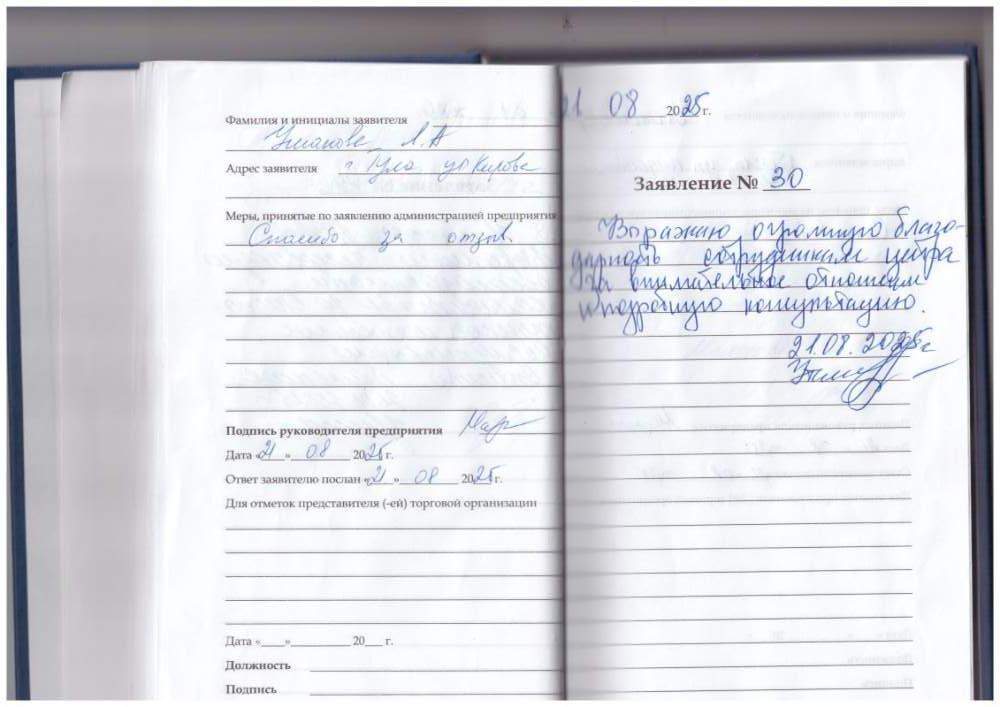 Фамилия и инициалы заявителя
Л.А
Адрес заявителя г Тула ул Кирова
Меры, принятые по заявлению администрацией предприятия
Спасибо за отзыв.
Подпись руководителя предприятия
Дата «21» 08 2025 г.
Ответ заявителю послан «21» 08 2025 г.
Для отметок представителя (-ей) торговой организации
Дата «___»__________ 20___ г.
Должность
Подпись
21 08 2025 г.
Заявление № 30
Выражаю огромную благо-
дарность сотрудникам центра
за внимательное отношение
и подробную консультацию.
21.08.2025г